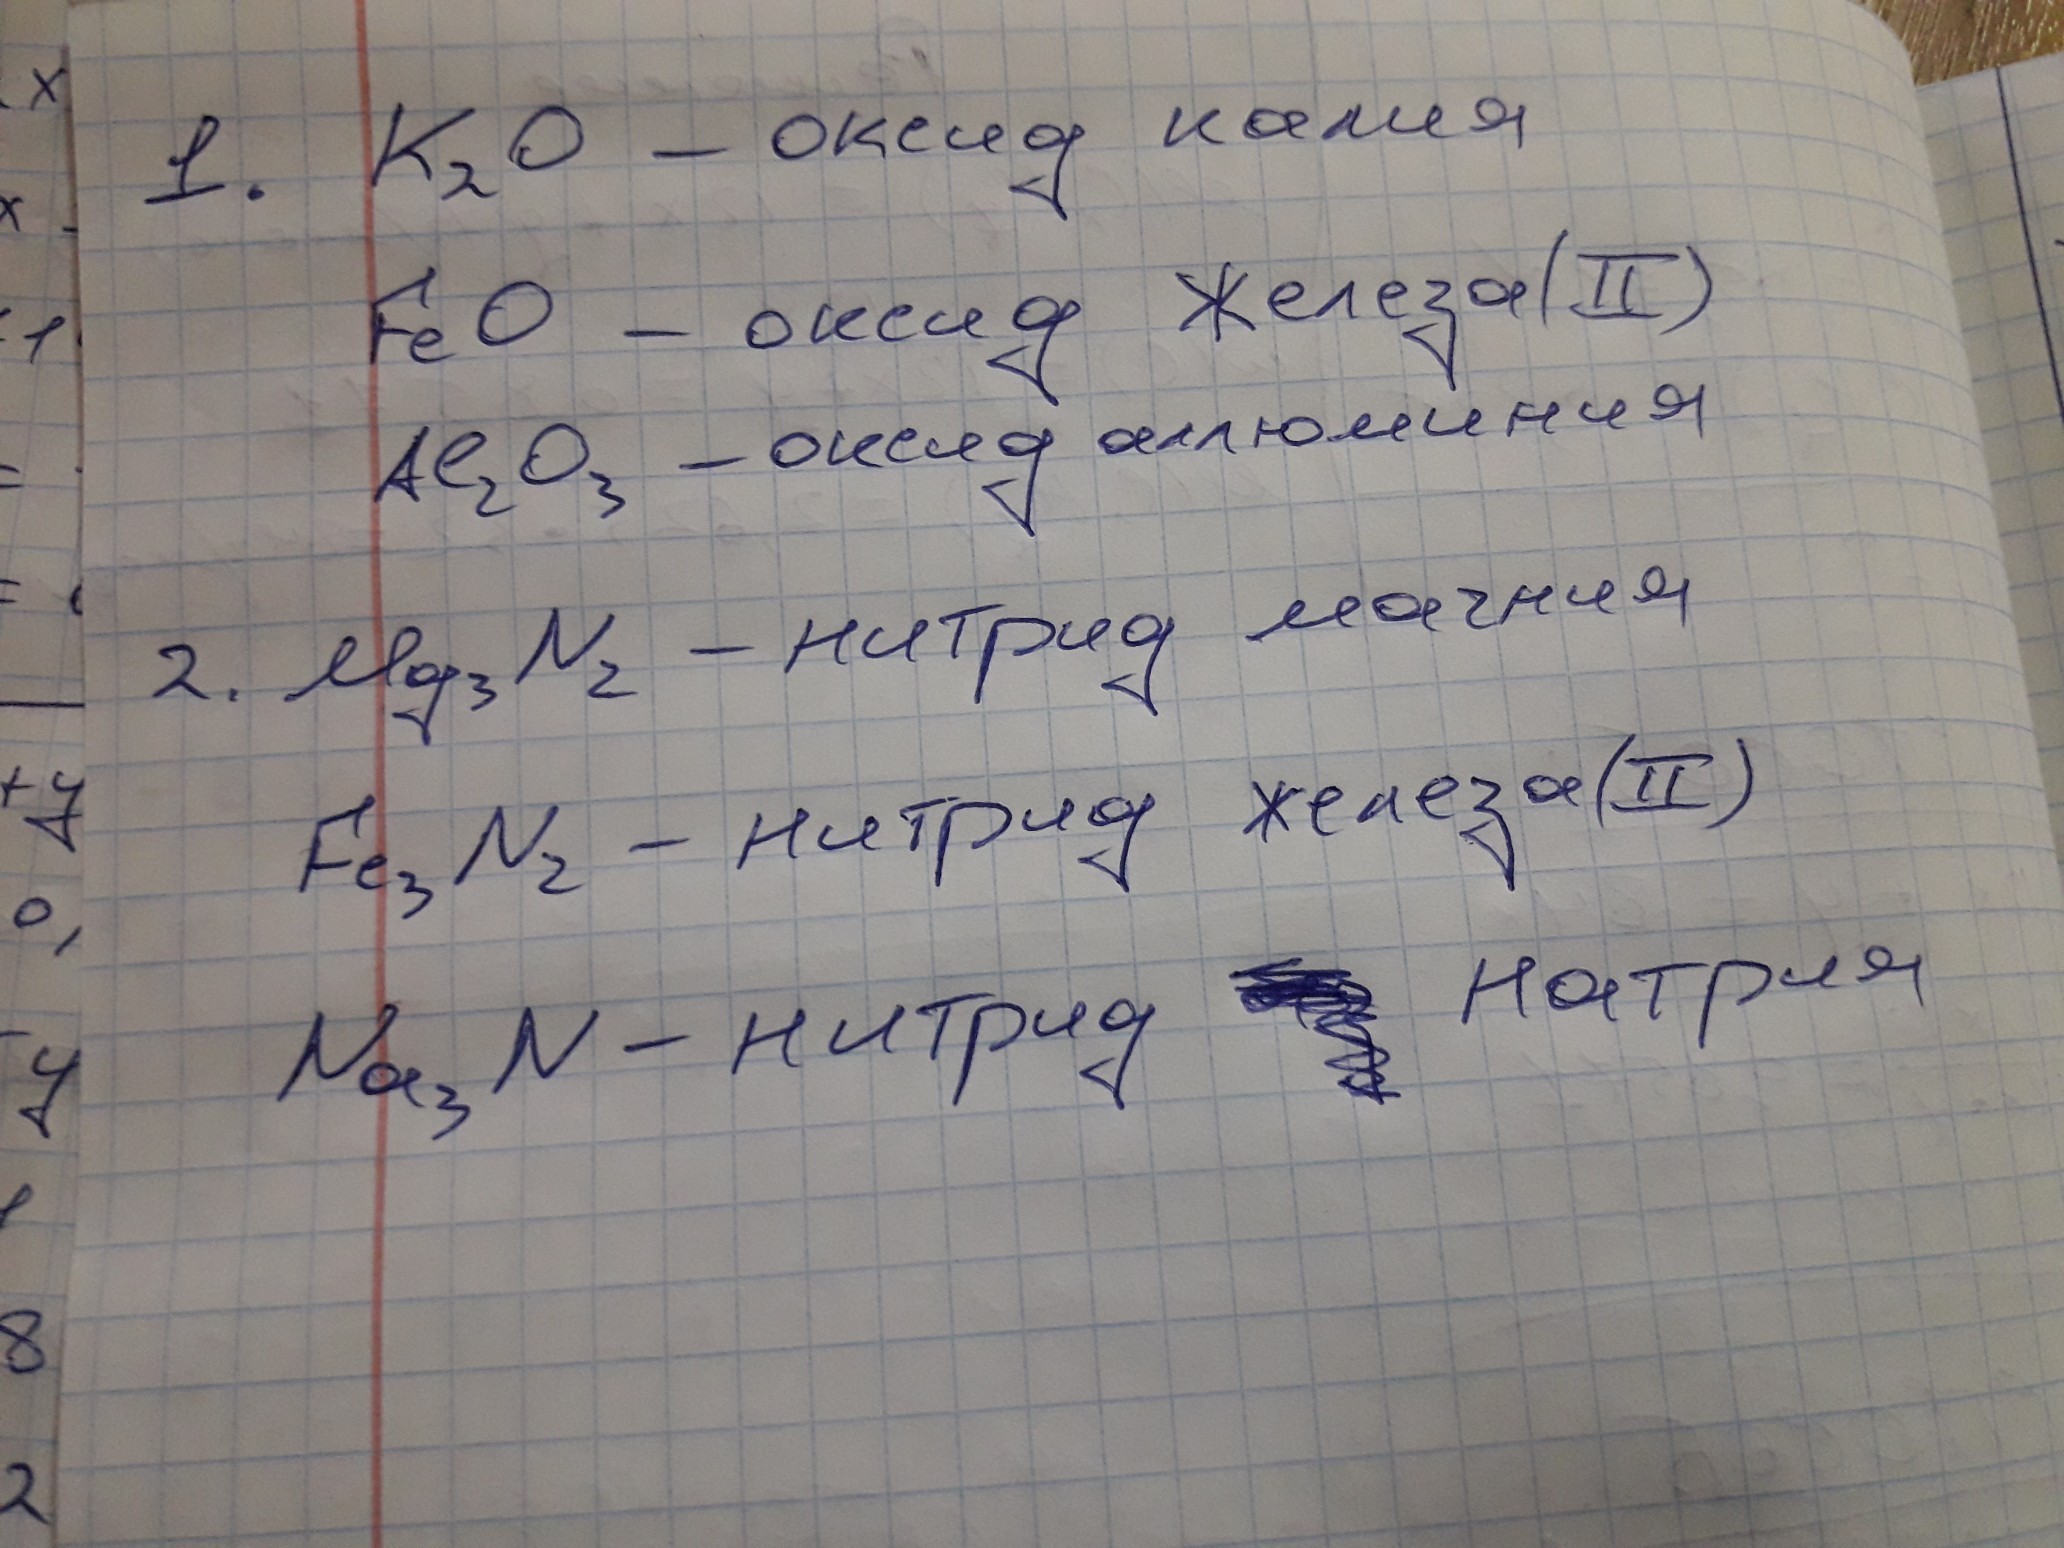 1. K₂O – оксид калия
FeO – оксид железа (II)
Al₂O₃ – оксид аллюминия
2. Mg₃N₂ – нитрид магния
Fe₃N₂ – нитрид железа (II)
Na₃N – нитрид натрия
x
x -
1
=
=
+y
0,
-y
1
8
2